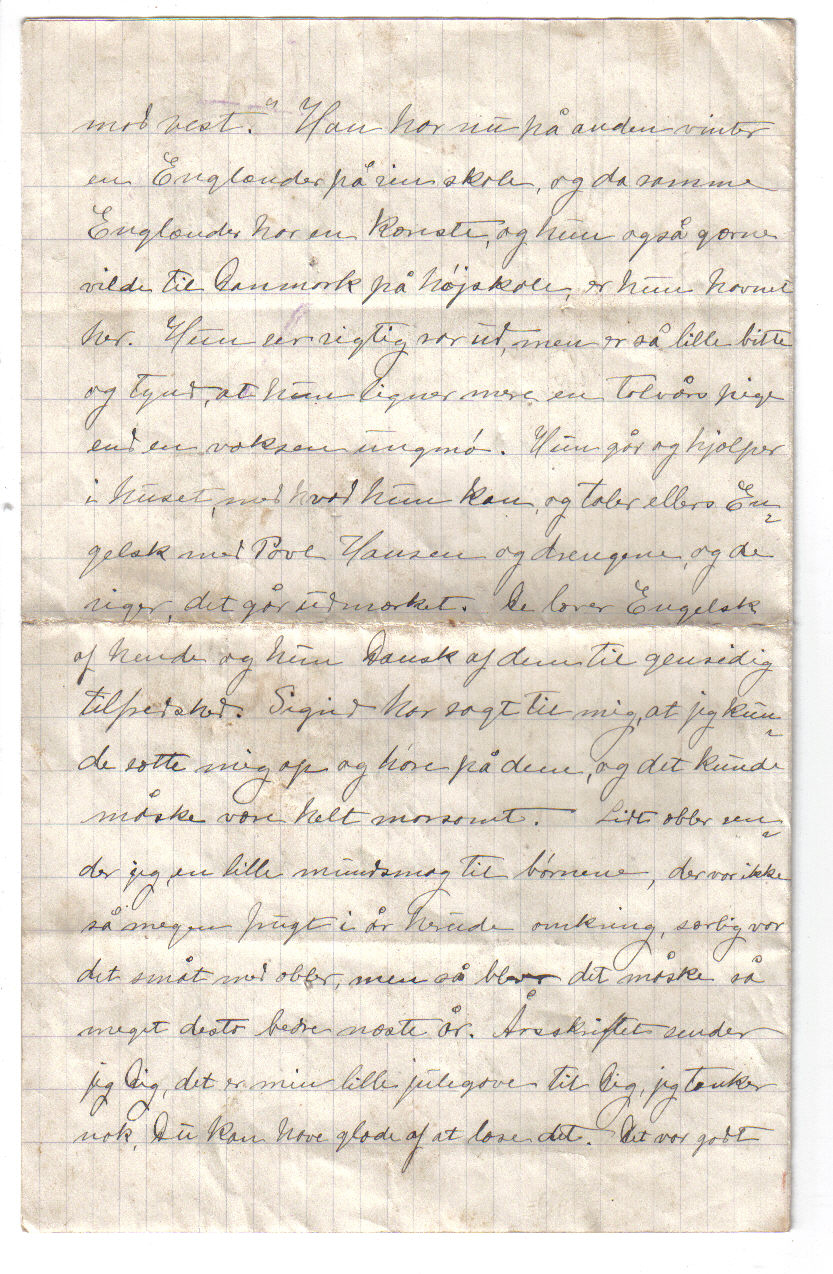 mod vest." Han har nu på anden vinter
en Englænder på sin skole, og da samme
Englænder har en Kæreste, og hun også gærne
vilde til Danmark på højskole, er hun havnet
her. Hun ser rigtig rar ud, men er så lille bitte
og tynd, at hun ligner mere en tolvårs pige
end en voksen ungmø. Hun går og hjælper
i huset, med hvad hun kan, og taler ellers En-
gelsk med Povl Hansen og drengene, og de
siger, det går udmærket. De lærer Engelsk
af hende og hun Dansk af dem til gensidig
tilfredshed. Sigrid har sagt til mig, at jeg kun-
de sætte mig op og høre på dem, og det kunde
måske være helt morsomt. Lidt æbler sen-
der jeg, en lille mundsmag til børnene, der var ikke
så megen frugt i år herude omkring, særlig var
det småt med æbler, men så bliver det måske så
meget desto bedre næste år. Årsskriftet sender
jeg Dig, det er min lille julegave til Dig, jeg tænker
nok, Du kan have glæde af at læse det. Det var godt